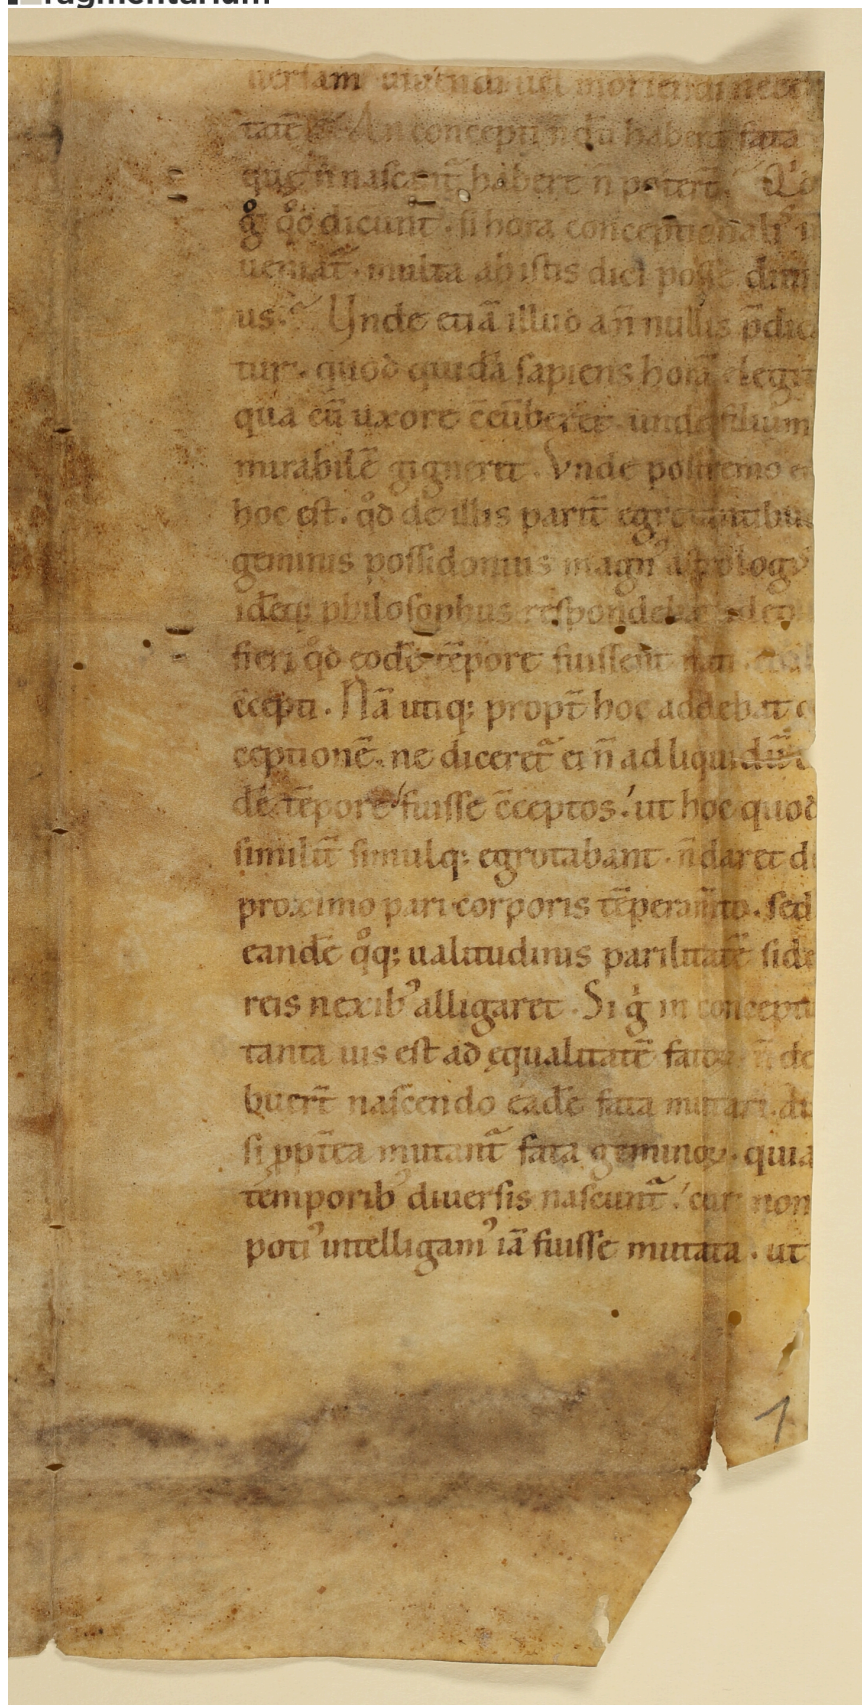 uersam uiuendi uel moriendi nec
tatē. An concepti n dū habent fata
quę n̄ nascant̄ habere n̄ potert̄. Qͦ
g̊ qͦd dicunt. si hora conceptionalis in
ueniat̄. multa ab istis dici posse diuin
us. Vnde etiā illud a n̄nullis p̄dica
tur. quod quidā sapiens horā elegit
qua cū uxore c̄cūberet. unde filium
mirabilē gigneret. Vnde postremo et
hoc est. qͦd de illis parit̄ egrotantibus
geminis possidonius magnꝰ astrologꝰ
idēq; philosophus respondebat
fieri qͦd eodē tēpore fuissent
c̄cepti. Nā utiq; propt̄ hoc addebat c
ceptionē. ne diceret̄ ei n̄ ad liquidū
dē tēpore fuisse c̄ceptos. ut hoc quod
similit̄ simulq; egrotabant. n̄ daret d
proximo pari corporis tēperam̄to. sed
eandē qͦq; ualitudinis parilitatē side
reis nexibꝰ alligaret. Si g̊ in concepti
tanta uis est ad ęqualitatē fatoꝝ n̄ de
buert̄ nascendo eadē fata mutari. at
si ꝓpt̄ea mutant̄ fata geminoꝝ. quia
temporibꝰ diuersis nascunt̄. cur non
potiꝰ intelligamꝰ iā fuisse mutata. ut
1